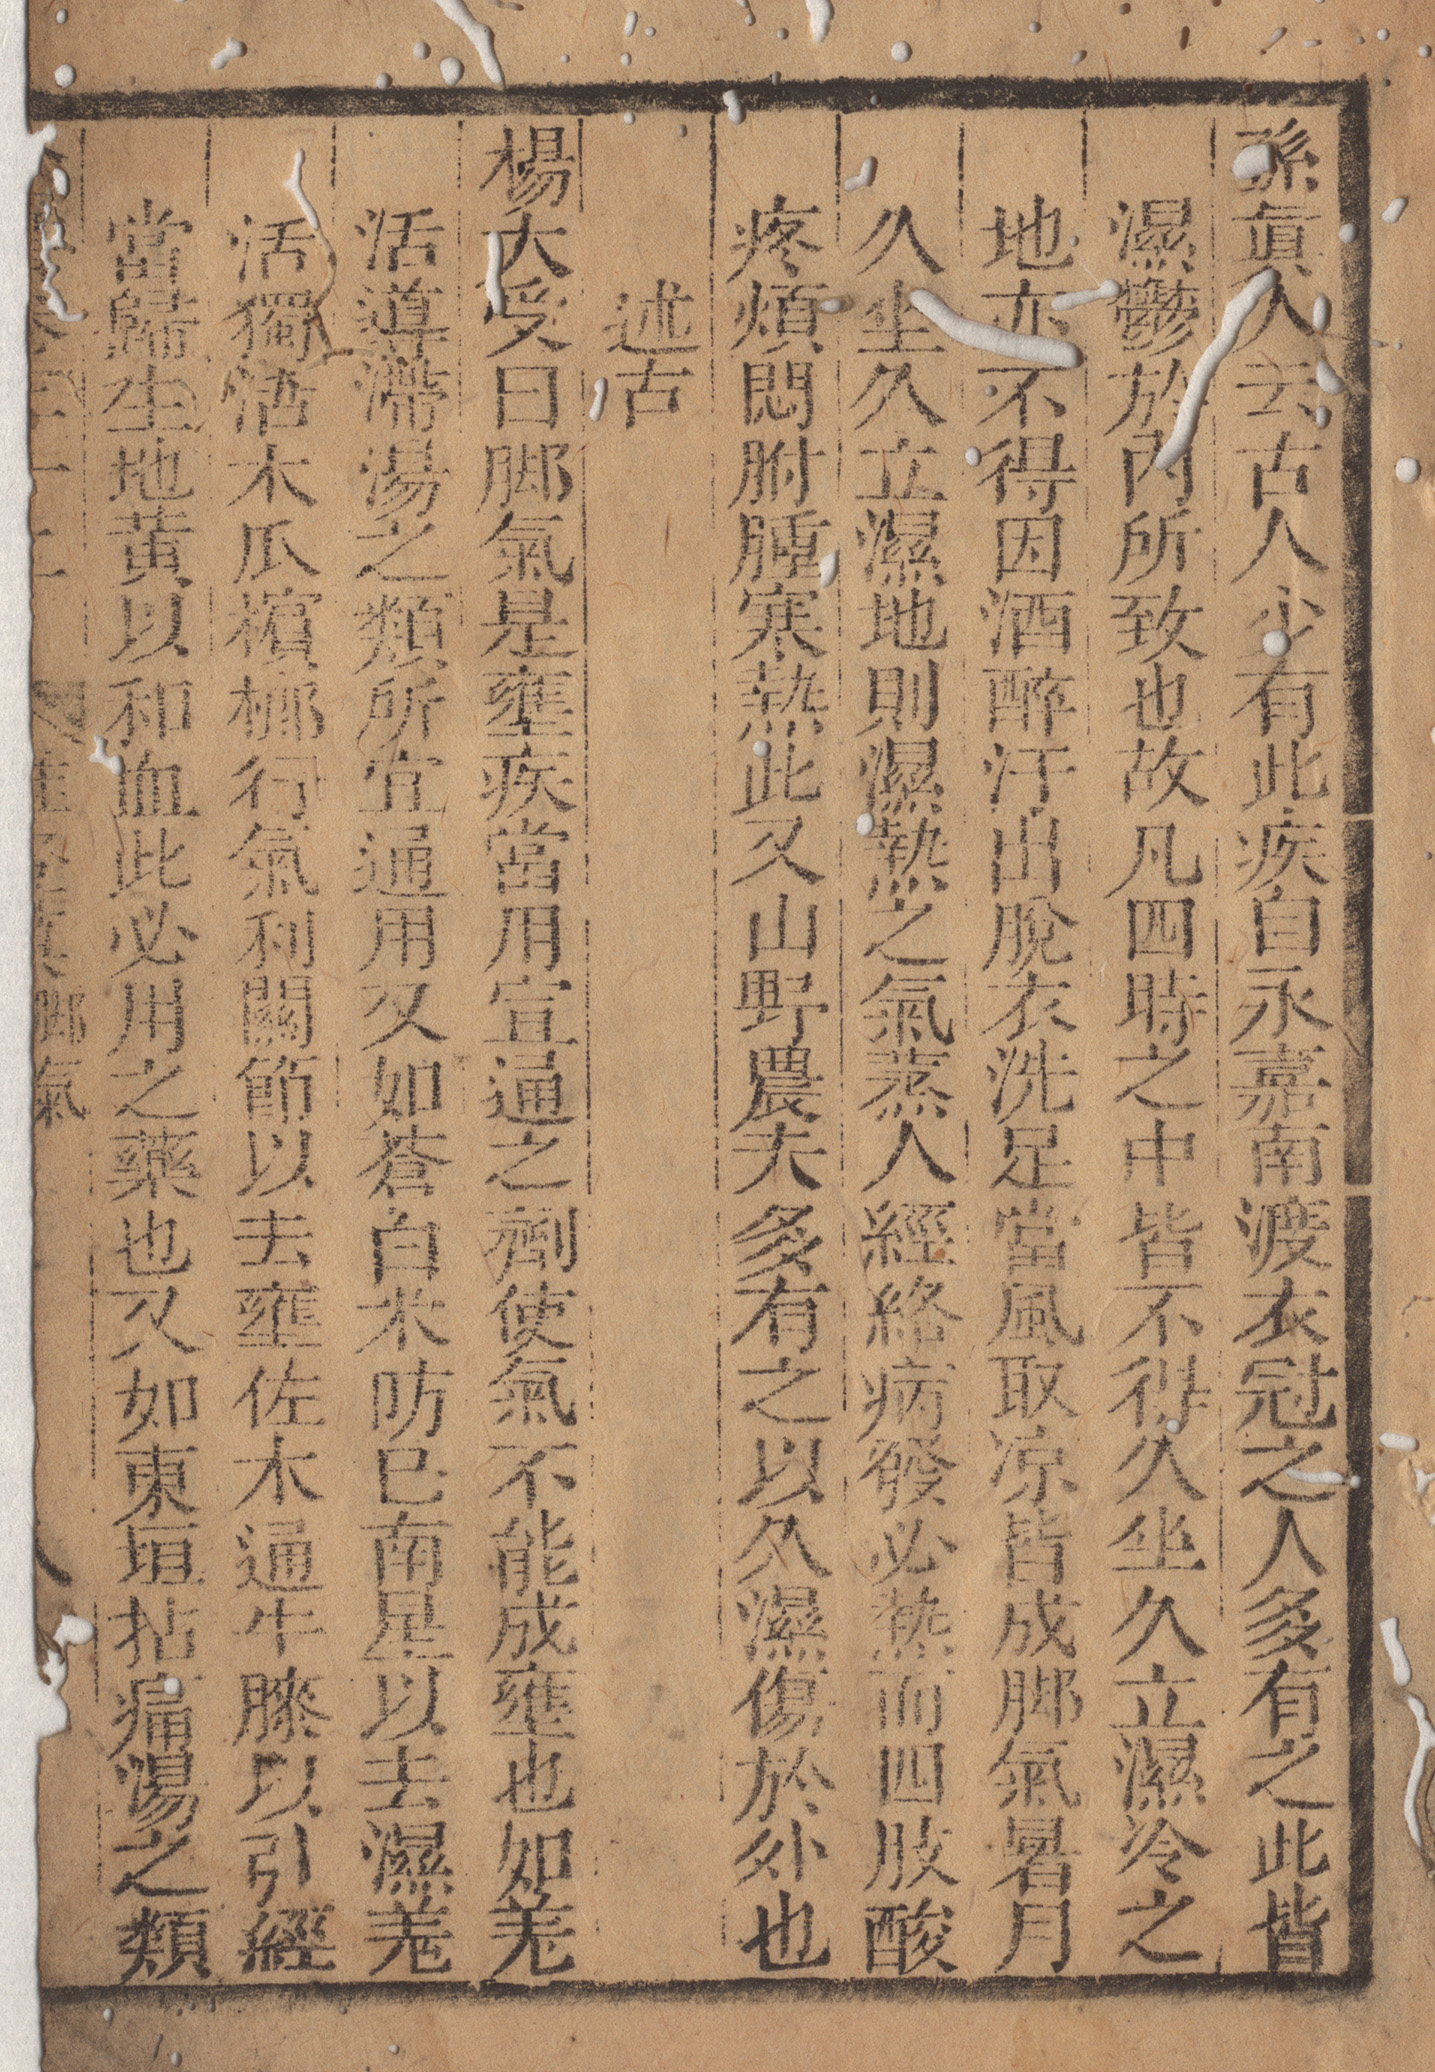 孫眞人云古人少有此疾自永嘉南渡衣冠之人多有之此皆
濕鬱於內所致也故凡四時之中皆不得久坐久立濕冷之
地亦不得因酒醉汗出脫衣洗足當風取凉皆成脚氣暑月
久坐久立濕地則濕熱之氣蒸人經絡病發必熱而四肢酸
疼煩悶胕腫寒熱此又山野農夫多有之以久濕傷於外也
述古
楊大受曰脚氣是壅疾當用宣通之劑使氣不能成壅也如羌
活導滯湯之類所宜通用又如蒼白朮防已南星以去濕羌
活獨活木瓜檳榔行氣利關節以去壅佐木通牛膝以引經
當歸生地黃以和血此必用之藥也又如東垣拈痛湯之類
脚氣